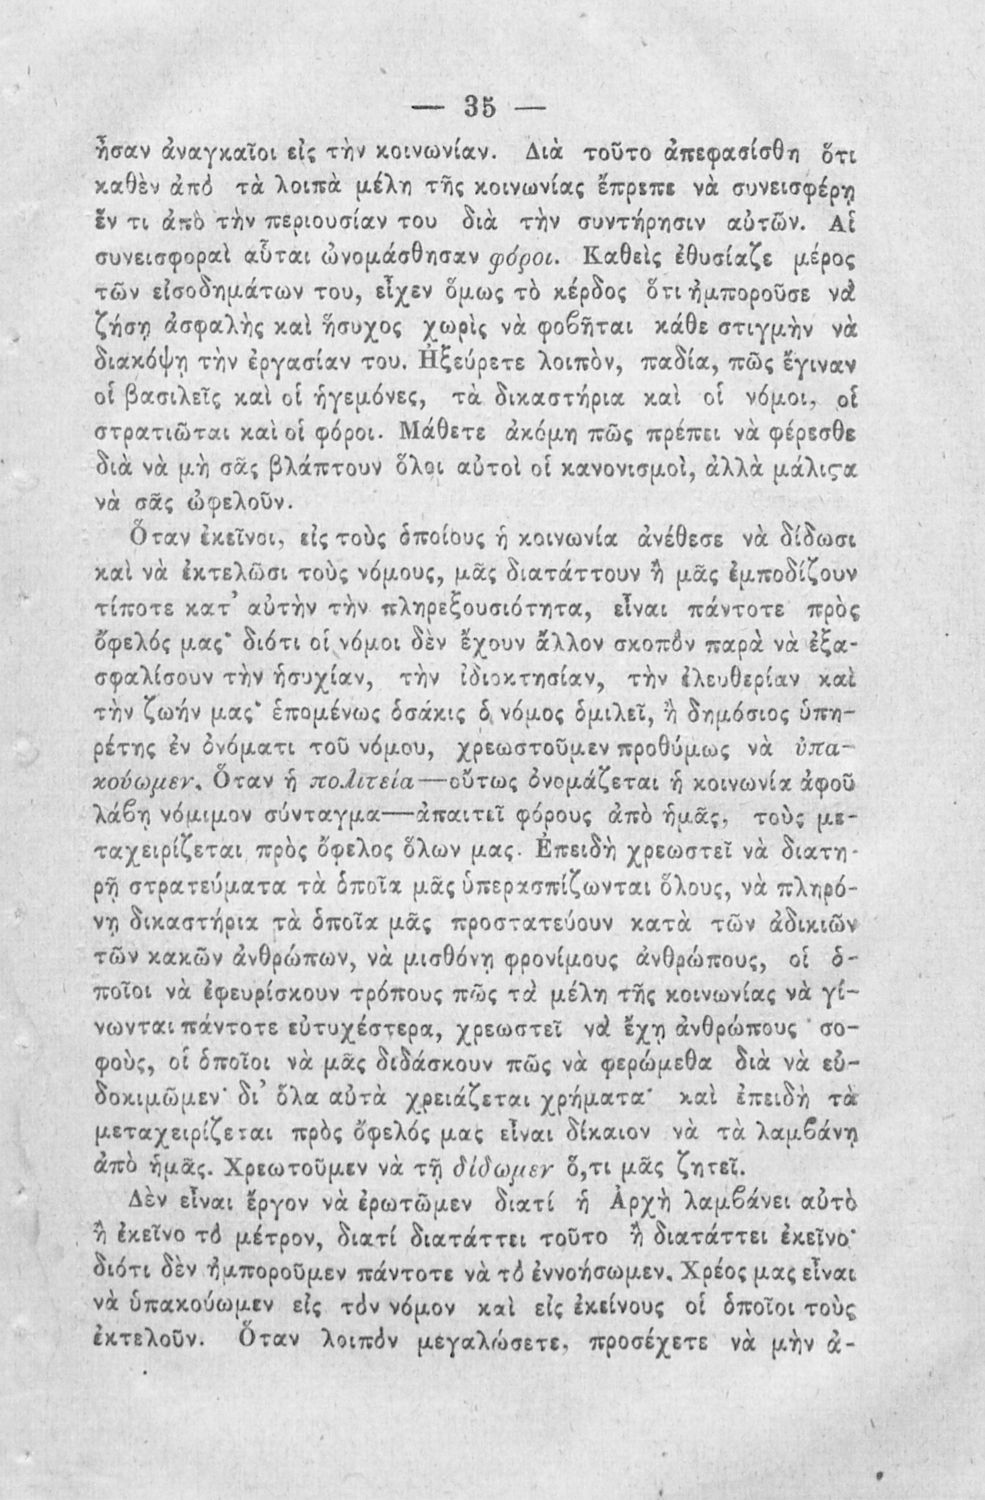 — 35 —
ἦσαν ἀναγκαῖοι εἰς τὴν κοινωνίαν. Διὰ τοῦτο ἀπεφασίσθη ὅτι
καθὲν ἀπὸ τὰ λοιπὰ μέλη τῆς κοινωνίας ἔπρεπε νὰ συνεισφέρῃ
ἕν τι ἀπὸ τὴν περιουσίαν του διὰ τὴν συντήρησιν αὐτῶν. Αἱ
συνεισφοραὶ αὗται ὠνομάσθησαν φόροι. Καθεὶς ἐθυσίαζε μέρος
τῶν εἰσοδημάτων του, εἶχεν ὅμως τὸ κέρδος ὅτι ἠμποροῦσε νὰ
ζήσῃ ἀσφαλὴς καὶ ἥσυχος χωρὶς νὰ φοβῆται κάθε στιγμὴν νὰ
διακόψῃ τὴν ἐργασίαν του. Ἠξεύρετε λοιπὸν, παδία, πῶς ἔγιναν
οἱ βασιλεῖς καὶ οἱ ἡγεμόνες, τὰ δικαστήρια καὶ οἱ νόμοι, οἱ
στρατιῶται καὶ οἱ φόροι. Μάθετε ἀκόμη πῶς πρέπει νὰ φέρεσθε
διὰ νὰ μὴ σᾶς βλάπτουν ὅλοι αὐτοὶ οἱ κανονισμοὶ, ἀλλὰ μάλιϛα
νὰ σᾶς ὠφελοῦν.
Ὅταν ἐκεῖνοι, εἰς τοὺς ὁποίους ἡ κοινωνία ἀνέθεσε νὰ δίδωσι
καὶ νὰ ἐκτελῶσι τοὺς νόμους, μᾶς διατάττουν ἢ μᾶς ἐμποδίζουν
τίποτε κατ’ αὐτὴν τὴν πληρεξουσιότητα, εἶναι πάντοτε πρὸς
ὄφελός μας· διότι οἱ νόμοι δὲν ἔχουν ἄλλον σκοπὸν παρὰ νὰ ἐξα-
σφαλίσουν τὴν ἡσυχίαν, τὴν ἰδιοκτησίαν, τὴν ἐλευθερίαν καὶ
τὴν ζωήν μας· ἑπομένως ὁσάκις ὁ νόμος ὁμιλεῖ, ἢ δημόσιος ὑπη-
ρέτης ἐν ὀνόματι τοῦ νόμου, χρεωστοῦμεν προθύμως νὰ ὑπα-
κούωμεν. Ὅταν ἡ πολιτεία—οὕτως ὀνομάζεται ἡ κοινωνία ἀφοῦ
λάβῃ νόμιμον σύνταγμα—ἀπαιτεῖ φόρους ἀπὸ ἡμᾶς, τοὺς με-
ταχειρίζεται πρὸς ὄφελος ὅλων μας. Ἐπειδὴ χρεωστεῖ νὰ διατη-
ρῇ στρατεύματα τὰ ὁποῖα μᾶς ὑπερασπίζωνται ὅλους, νὰ πληρό-
νῃ δικαστήρια τὰ ὁποῖα μᾶς προστατεύουν κατὰ τῶν ἀδικιῶν
τῶν κακῶν ἀνθρώπων, νὰ μισθόνῃ φρονίμους ἀνθρώπους, οἱ ὁ-
ποῖοι νὰ ἐφευρίσκουν τρόπους πῶς τὰ μέλη τῆς κοινωνίας νὰ γί-
νωνται πάντοτε εὐτυχέστερα, χρεωστεῖ νὰ ἔχῃ ἀνθρώπους σο-
φοὺς, οἱ ὁποῖοι νὰ μᾶς διδάσκουν πῶς νὰ φερώμεθα διὰ νὰ εὐ-
δοκιμῶμεν· δι’ ὅλα αὐτὰ χρειάζεται χρήματα· καὶ ἐπειδὴ τὰ
μεταχειρίζεται πρὸς ὄφελός μας εἶναι δίκαιον νὰ τὰ λαμβάνῃ
ἀπὸ ἡμᾶς. Χρεωτοῦμεν νὰ τῇ δίδωμεν ὅ,τι μᾶς ζητεῖ.
Δὲν εἶναι ἔργον νὰ ἐρωτῶμεν διατί ἡ Ἀρχὴ λαμβάνει αὐτὸ
ἢ ἐκεῖνο τὸ μέτρον, διατί διατάττει τοῦτο ἢ διατάττει ἐκεῖνο·
διότι δὲν ἠμποροῦμεν πάντοτε νὰ τὸ ἐννοήσωμεν. Χρέος μας εἶναι
νὰ ὑπακούωμεν εἰς τὸν νόμον καὶ εἰς ἐκείνους οἱ ὁποῖοι τοὺς
ἐκτελοῦν. Ὅταν λοιπὸν μεγαλώσετε, προσέχετε νὰ μὴν ἀ-